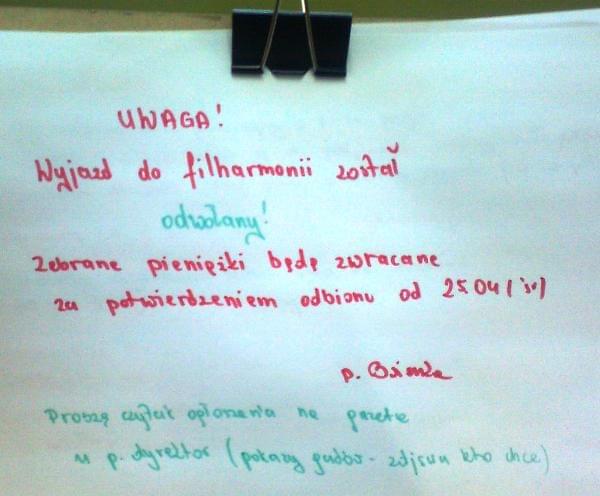 UWAGA!
Wyjazd do filharmonii został
odwołany!
Zebrane pieniążki będą zwracane
za potwierdzeniem odbioru od 25.04 (śr)
p.
Proszę czytać ogłoszenia na gazetce
u p. dyrektor (pokazy gadów - zdjęcia kto chce)